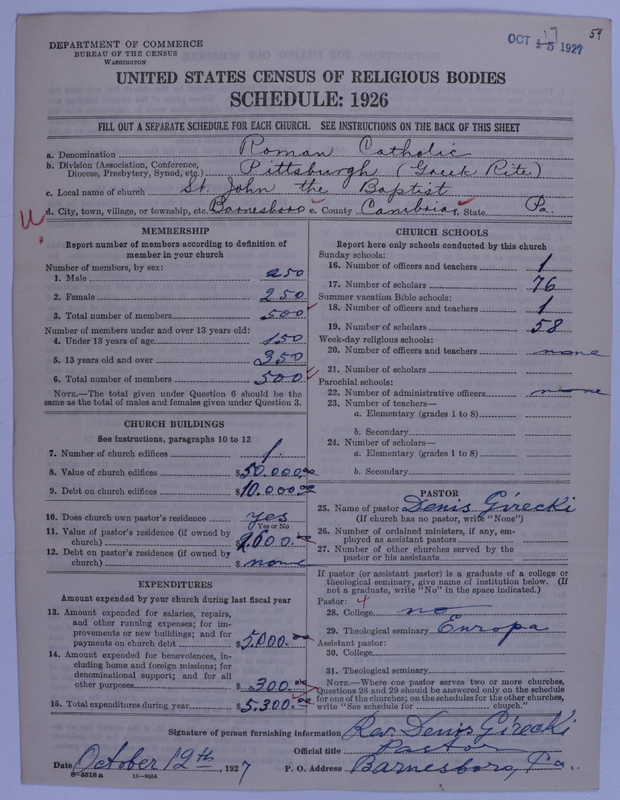 DEPARTMENT OF COMMERCE
BUREAU OF THE CENSUS
WASHINGTON
OCT 15 1927
17
59
UNITED STATES CENSUS OF RELIGIOUS BODIES
SCHEDULE: 1926
FILL OUT A SEPARATE SCHEDULE FOR EACH CHURCH. SEE INSTRUCTIONS ON THE BACK OF THIS SHEET
a. Denomination Roman Catholic
b. Division (Association, Conference, Diocese, Presbytery, Synod, etc.) Pittsburgh (Greek Rite)
c. Local name of church St. John the Baptist
d. City, town, village, or township, etc. Barnesboro e. County Cambria f. State Pa.
MEMBERSHIP
Report number of members according to definition of
member in your church
Number of members, by sex:
1. Male 250
2. Female 250
3. Total number of members 500
Number of members under and over 13 years old:
4. Under 13 years of age 150
5. 13 years old and over 350
6. Total number of members 500
NOTE.—The total given under Question 6 should be
same as the total of males and females given under Question 3.
CHURCH BUILDINGS
See instructions, paragraphs 10 to 12
7. Number of church edifices 1.
8. Value of church edifices $50.000.00
9. Debt on church edifices $10.000.00
10. Does church own pastor's residence yes
Yes or No
11. Value of pastor's residence (if owned by
church) $9.000.00
12. Debt on pastor's residence (if owned by
church) $ none
EXPENDITURES
Amount expended by your church during last fiscal year
13. Amount expended for salaries, repairs,
and other running expenses; for im-
provements or new buildings; and for
payments on church debt $5.000.00
14. Amount expended for benevolences, in-
cluding home and foreign missions; for
denominational support; and for all
other purposes $300.00
15. Total expenditures during year $5.300.00
CHURCH SCHOOLS
Report here only schools conducted by this church
Sunday schools:
16. Number of officers and teachers 1
17. Number of scholars 76
Summer vacation Bible schools:
18. Number of officers and teachers 1
19. Number of scholars 58
Week-day religious schools:
20. Number of officers and teachers none
21. Number of scholars
Parochial schools:
22. Number of administrative officers none
23. Number of teachers—
a. Elementary (grades 1 to 8)
b. Secondary
24. Number of scholars—
a. Elementary (grades 1 to 8)
b. Secondary
PASTOR
25. Name of pastor Denis Girecki
(If church has no pastor, write "None")
26. Number of ordained ministers, if any, em-
ployed as assistant pastors
27. Number of other churches served by the
pastor or his assistants
If pastor (or assistant pastor) is a graduate of a college or
theological seminary, give name of institution below. (If
not a graduate, write "No" in the space indicated.)
Pastor:
28. College no
29. Theological seminary Europa
Assistant pastor:
30. College
31. Theological seminary
NOTE.—Where one pastor serves two or more churches,
Questions 28 and 29 should be answered only on the schedule
for one of the churches; on the schedules for the other churches,
write "See schedule for church."
Signature of person furnishing information Rev. Denis Girecki
Official title Pastor
Date October 12th, 1927
P. O. Address Barnesboro, Pa.
8—5518 a 11—9554